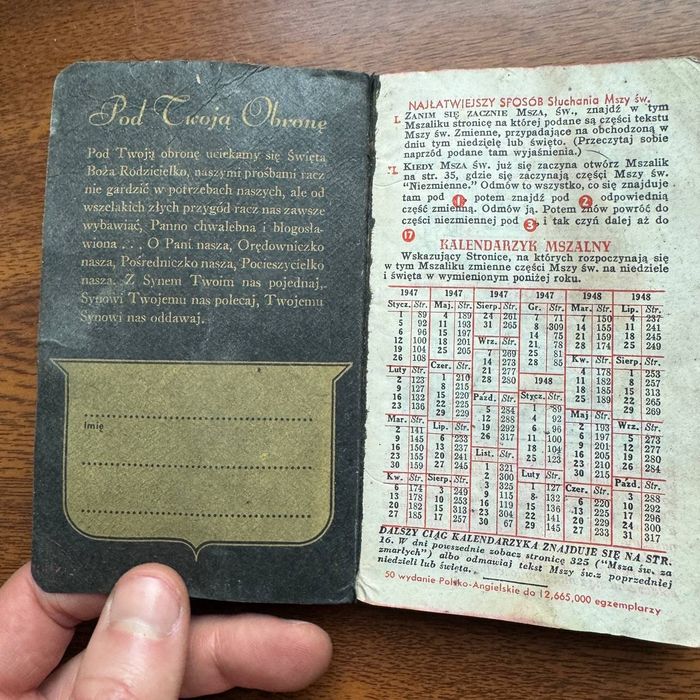 Pod Twoją Obronę
Pod Twoją obronę uciekamy się Święta
Boża Rodzicielko, naszymi prośbami racz
nie gardzić w potrzebach naszych, ale od
wszelakich złych przygód racz nas zawsze
wybawiać, Panno chwalebna i błogosła-
wiona . . . O Pani nasza, Orędowniczko
nasza, Pośredniczko nasza, Pocieszycielko
nasza. Z Synem Twoim nas pojednaj,
Synowi Twojemu nas polecaj, Twojemu
Synowi nas oddawaj.
Imię
NAJŁATWIEJSZY SPOSÓB Słuchania Mszy św.
I. ZANIM SIĘ ZACZNIE MSZA, ŚW., znajdź w tym
Mszaliku stronicę na której podane są części tekstu
Mszy św. Zmienne, przypadające na obchodzoną w
dniu tym niedzielę lub święto. (Przeczytaj sobie
naprzód podane tam wyjaśnienia.)
KIEDY MSZA św. już się zaczyna otwórz Mszalik
na str. 35, gdzie się zaczynają części Mszy św.
"Niezmienne." Odmów to wszystko, co się znajduje
tam pod 1 potem znajdź pod 2 odpowiednią
część zmienną. Odmów ją. Potem znów powróć do
części niezmiennej pod 3 i tak czyń dalej aż do
17
KALENDARZYK MSZALNY
Wskazujący Stronice, na których rozpoczynają się
w tym Mszaliku zmienne części Mszy św. na niedziele
i święta w wymienionym poniżej roku.
1947 1947 1947 1947 1948 1948
Stycz. Str. Maj. Str. Sierp. Str. Gr. Str. Mar. Str. Lip. Str.
1 89 4 189 24 261 7 71 7 150 4 237
5 92 11 193 31 265 8 309 14 155 11 241
6 96 15 197 14 75 21 159 18 245
12 100 18 201 Wrz. Str. 21 78 28 174 25 249
19 104 25 205 7 269 25 81
26 108 14 273 28 85 Kw. Str. Sierp. Str.
Luty Str. Czer. Str. 21 277 4 178 1 253
2 123 1 210 28 280 1948 11 182 8 257
9 127 8 215 18 185 15 263
16 132 15 220 Paźd. Str. Stycz. Str. 25 189 22 265
23 136 22 225 5 284 1 89 29 269
29 229 12 288 4 92 Maj Str.
Mar. Str. Lip. Str. 19 292 6 96 2 193 Wrz. Str.
2 141 6 233 26 317 11 100 6 197 5 273
9 145 13 237 18 104 9 201 12 277
16 150 20 241 List. Str. 25 123 16 205 19 280
23 155 27 245 1 321 23 210 26 284
30 159 2 300 Luty Str. 30 215
Kw. Str. Sierp. Str. 3 325 1 127 Paźd. Str.
6 174 3 249 9 115 8 132 Czer. Str. 3 288
13 178 10 253 16 119 15 136 6 220 10 292
20 182 15 313 23 304 22 141 13 225 17 296
27 185 17 257 30 67 29 145 20 229 24 300
27 233 31 317
DALSZY CIĄG KALENDARZYKA ZNAJDUJE SIĘ NA STR.
16. W dni powszednie zobacz stronicę 325 ("Msza św. za
zmarłych") albo odmawiaj tekst Mszy św. z poprzedniej
niedzieli lub święta.
50 wydanie Polsko-Angielskie do 12,665,000 egzemplarzy